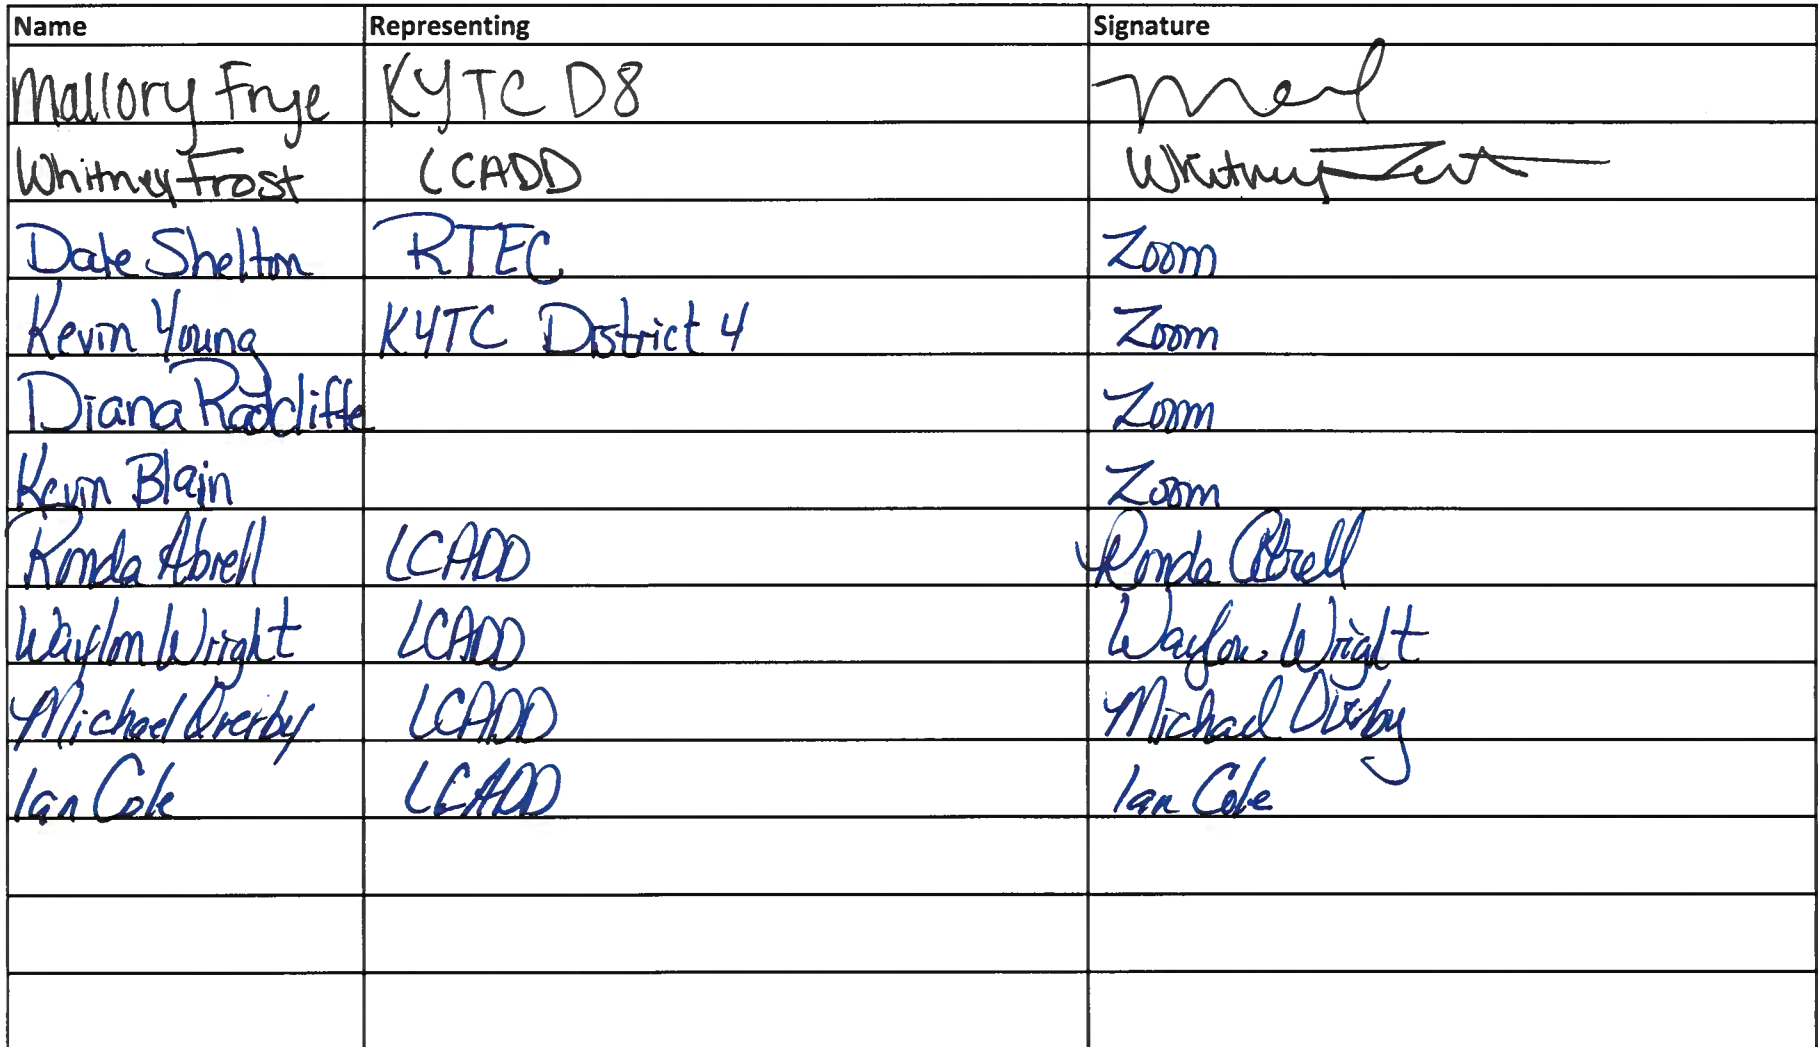 Name Representing Signature
Mallory Frye KYTC D8
Whitney Frost LCADD Whitney Frost
Dale Shelton RTEC Zoom
Kevin Young KYTC District 4 Zoom
Diana Radcliffe Zoom
Kevin Blain Zoom
Ronda Abrell LCADD Ronda Abrell
Waylon Wright LCADD Waylon Wright
Michael Overby LCADD Michael Overby
Ian Cole LCADD Ian Cole